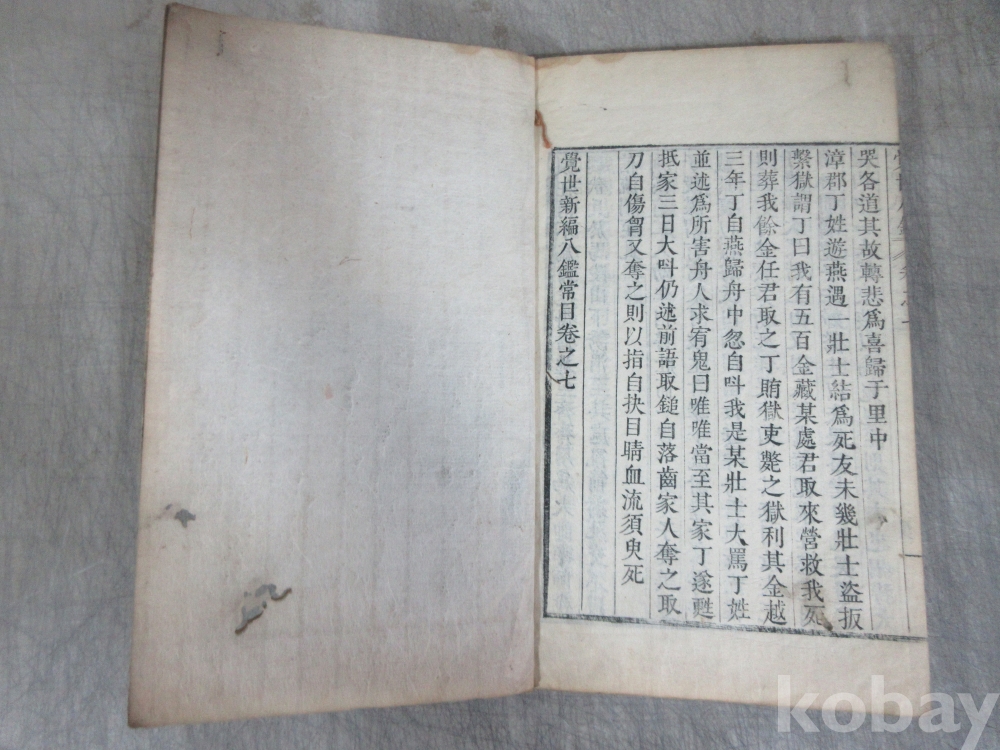 哭各道其故轉悲爲喜歸于里中
漳郡丁姓遊燕遇一壯士結爲死友未幾壯士盜扳
繫獄謂丁曰我有五百金藏某處君取來營救我死
則葬我餘金任君取之丁賄獄吏斃之獄利其金越
三年丁自燕歸舟中忽自呌我是某壯士大罵丁姓
並述爲所害舟人求宥鬼曰唯唯當至其家丁遂甦
抵家三日大呌仍述前語取鎚自落齒家人奪之取
刀自傷胷又奪之則以指自抉目睛血流須臾死
覺世新編八鑑常目卷之七
kobay